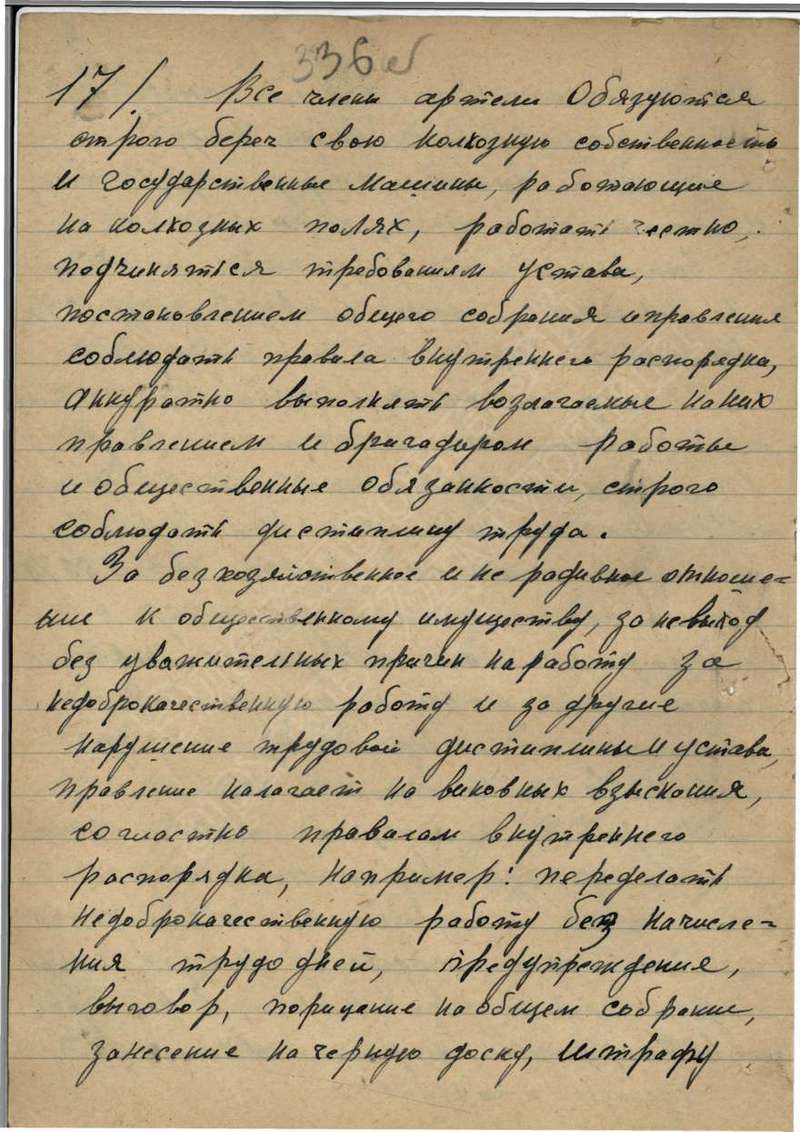 336
17/. Все члены артели Обязуются
строго береч свою колхозную собственность
и государственные машины, работающие
на колхозных полях, работать честно,
подчиняться требованиям устава,
постановлением общего собрания и правления
соблюдать правила внутреннего распорядка,
аккуратно выполнять возлагаемые на них
правлением и бригадиром работы
и общественные обязанности, строго
соблюдать дисциплину труда.
За безхозяйственное и не радивное отноше=
ние к общественному имуществу, за невыход
без уважительных причин на работу за
недоброкачественную работу и за другие
нарушение трудовой дисциплины и устава,
правление налагает на виновных взыскания,
согластно правалам внутреннего
распорядка, например: переделать
недоброкачественную работу без начисле=
ния трудодней, предупреждения,
выговор, порицание на общем собрании,
занесение на черную доску, штрафу